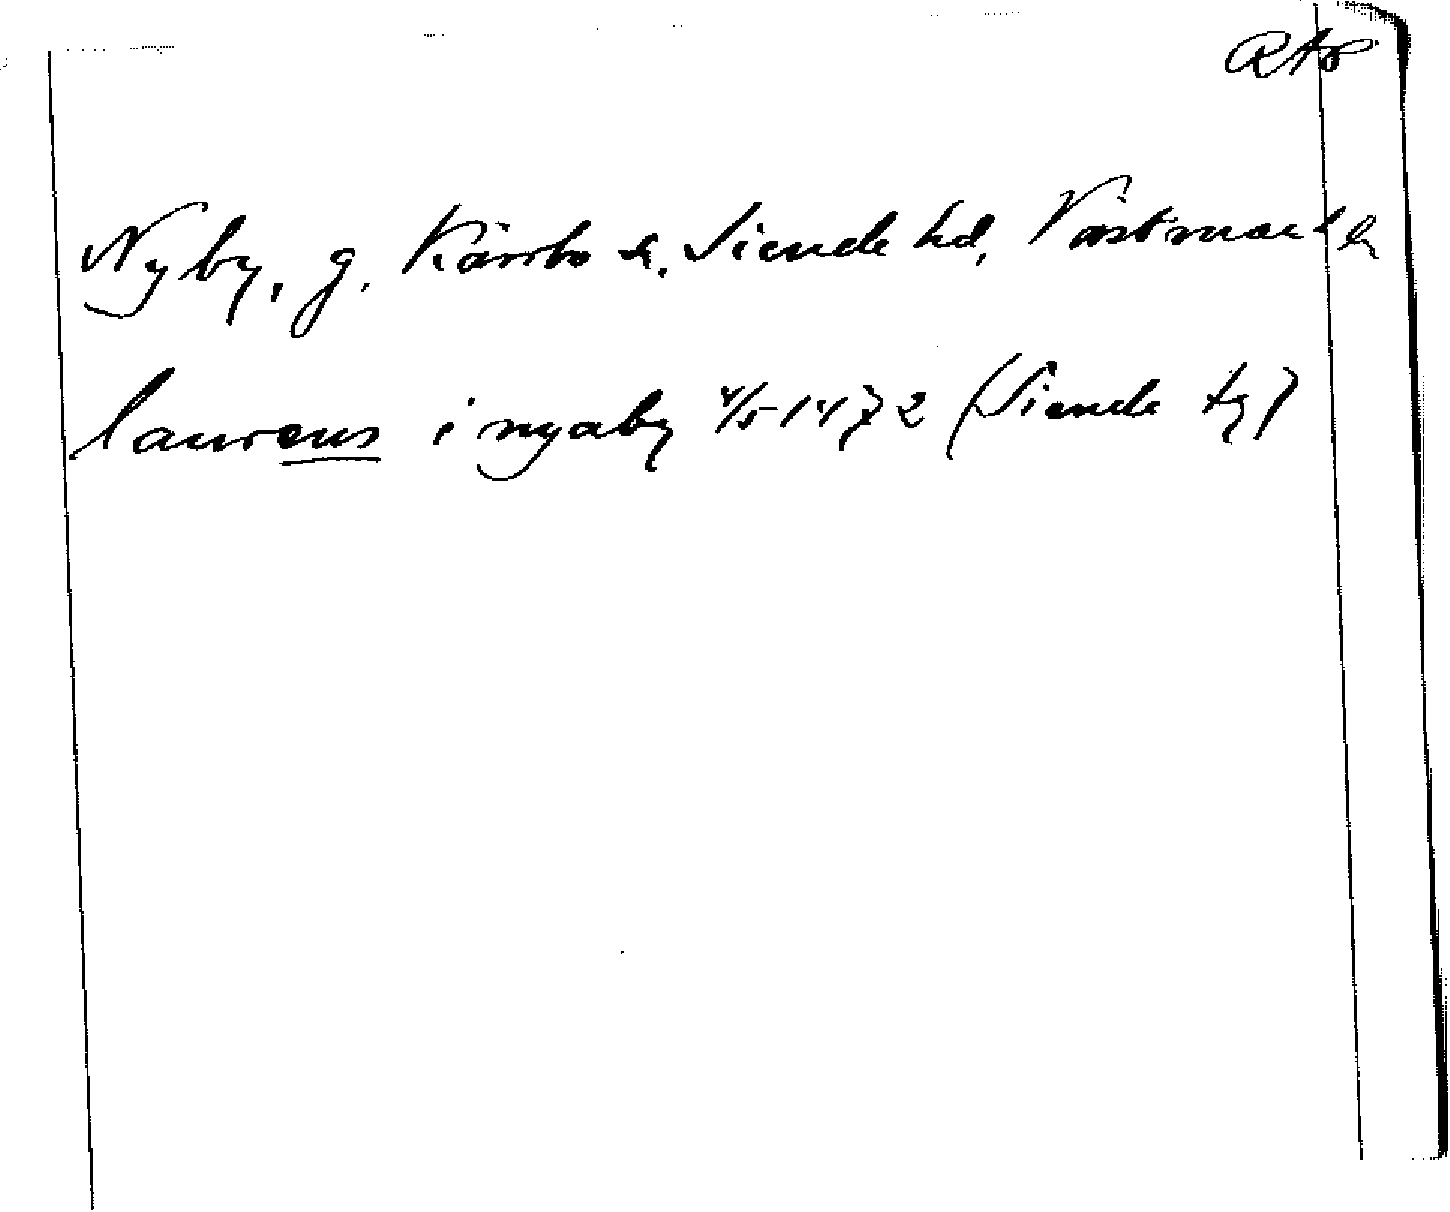 RAp
Nyby, g. Kärrbo s. Siende hd, Västmanl
laurens i nyaby 4/5 1472 (Siende tg)